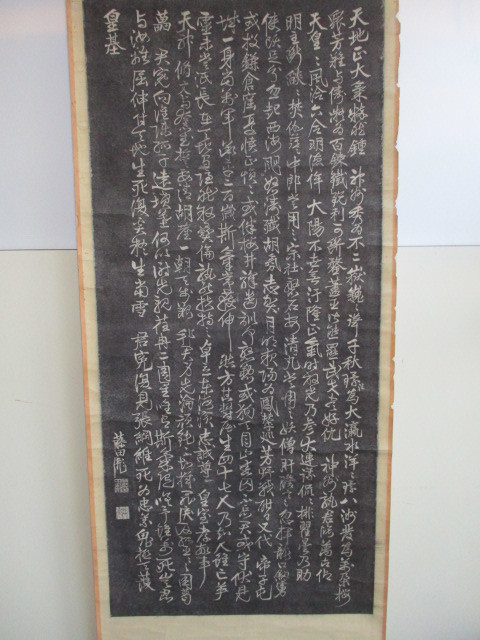 天地正大氣粹然鍾神州秀為不二嶽巍巍聳千秋注為大瀛水洋洋環八洲發為萬朶櫻
衆芳難與儔凝為百錬鐵銳利可斷鍪藎臣皆熊羆武夫盡好仇神州孰君臨萬古仰
天皇皇風洽六合明德侔大陽不世無汙隆正氣時放光乃參大連議侃侃排瞿曇乃助
明主斷燄燄焚伽藍中郎嘗用之宗社磐石安清丸嘗用之妖僧肝膽寒忽揮龍口劍虜
使頭足分忽起西海颶怒濤殲胡氛志賀月明夜陽為鳳輦巡芳野戰酣日又代帝子屯
或投鎌倉窟憂憤正愪愪或伴櫻井驛遺訓何慇懃或殉天目山幽囚不忘君或守伏見
城一身當萬軍承平二百歲斯氣常獲伸然方其鬱屈生四十七人乃知人雖亡英
靈未嘗泯長在天地間凛然敘彝倫孰能扶持之卓立東海濱忠誠尊皇室孝敬事
天神修文與奮武誓欲清胡塵一朝天步艱邦君身先淪頑鈍不知機罪戾及孤臣孤臣困葛
藟君冤向誰陳孤子遠墳墓何以報先親荏苒二周星唯有斯氣隨嗟予雖萬死豈忍
與汝離屈伸付天地生死復奚疑生當雪君冤復見張綱維死為忠義鬼極天護
皇基
藤田彪